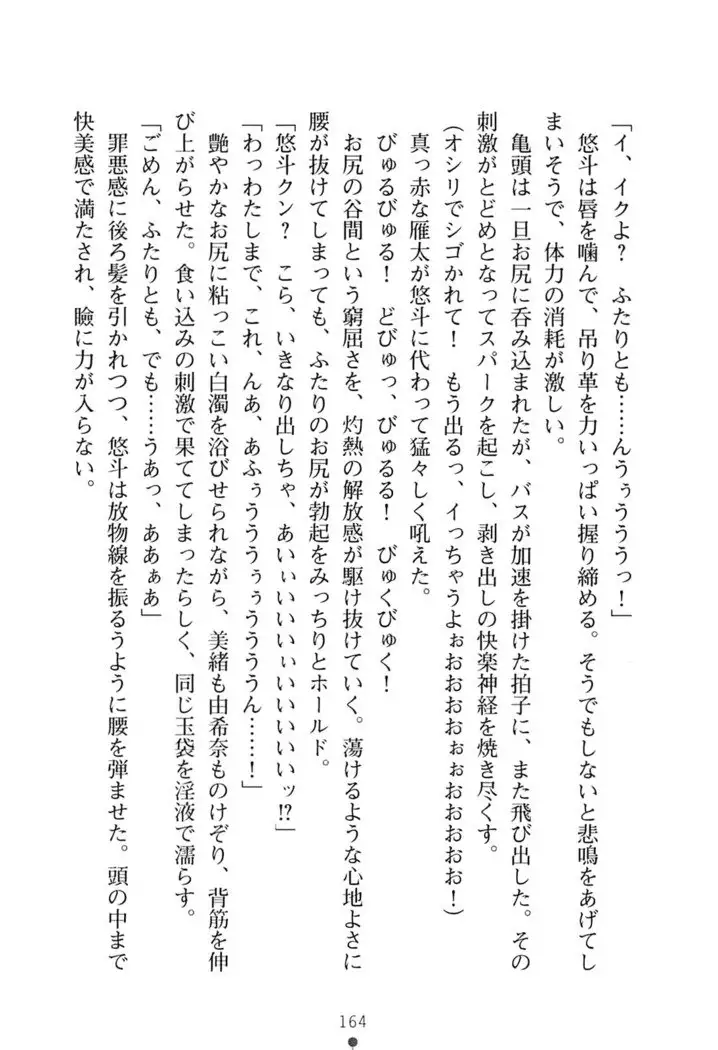 「イ、イクよ？　ふたりとも……んうぅううっ！」
　悠斗は唇を噛んで、吊り革を力いっぱい握り締める。そうでもしないと悲鳴をあげてし
まいそうで、体力の消耗が激しい。
　亀頭は一旦お尻に呑み込まれたが、バスが加速を掛けた拍子に、また飛び出した。その
刺激がとどめとなってスパークを起こし、剥き出しの快楽神経を焼き尽くす。
（オシリでシゴかれて！　もう出るっ、イっちゃうよぉおおおおぉぉおおおおお！）
　真っ赤な雁太が悠斗に代わって猛々しく吼えた。
　びゅるびゅる！　どびゅっ、びゅるる！　びゅくびゅく！
　お尻の谷間という窮屈さを、灼熱の解放感が駆け抜けていく。蕩けるような心地よさに
腰が抜けてしまっても、ふたりのお尻が勃起をみっちりとホールド。
「悠斗クン？　こら、いきなり出しちゃ、あいぃいいいいぃいいいいいッ!?」
「わっわたしまで、これ、んあ、あふぅうううぅぅうううん……！」
　艶やかなお尻に粘っこい白濁を浴びせられながら、美緒も由希奈ものけぞり、背筋を伸
び上がらせた。食い込みの刺激で果ててしまったらしく、同じ玉袋を淫液で濡らす。
「ごめん、ふたりとも、でも……うあっ、ああぁあ」
　罪悪感に後ろ髪を引かれつつ、悠斗は放物線を振るうように腰を弾ませた。頭の中まで
快美感で満たされ、瞼に力が入らない。
164